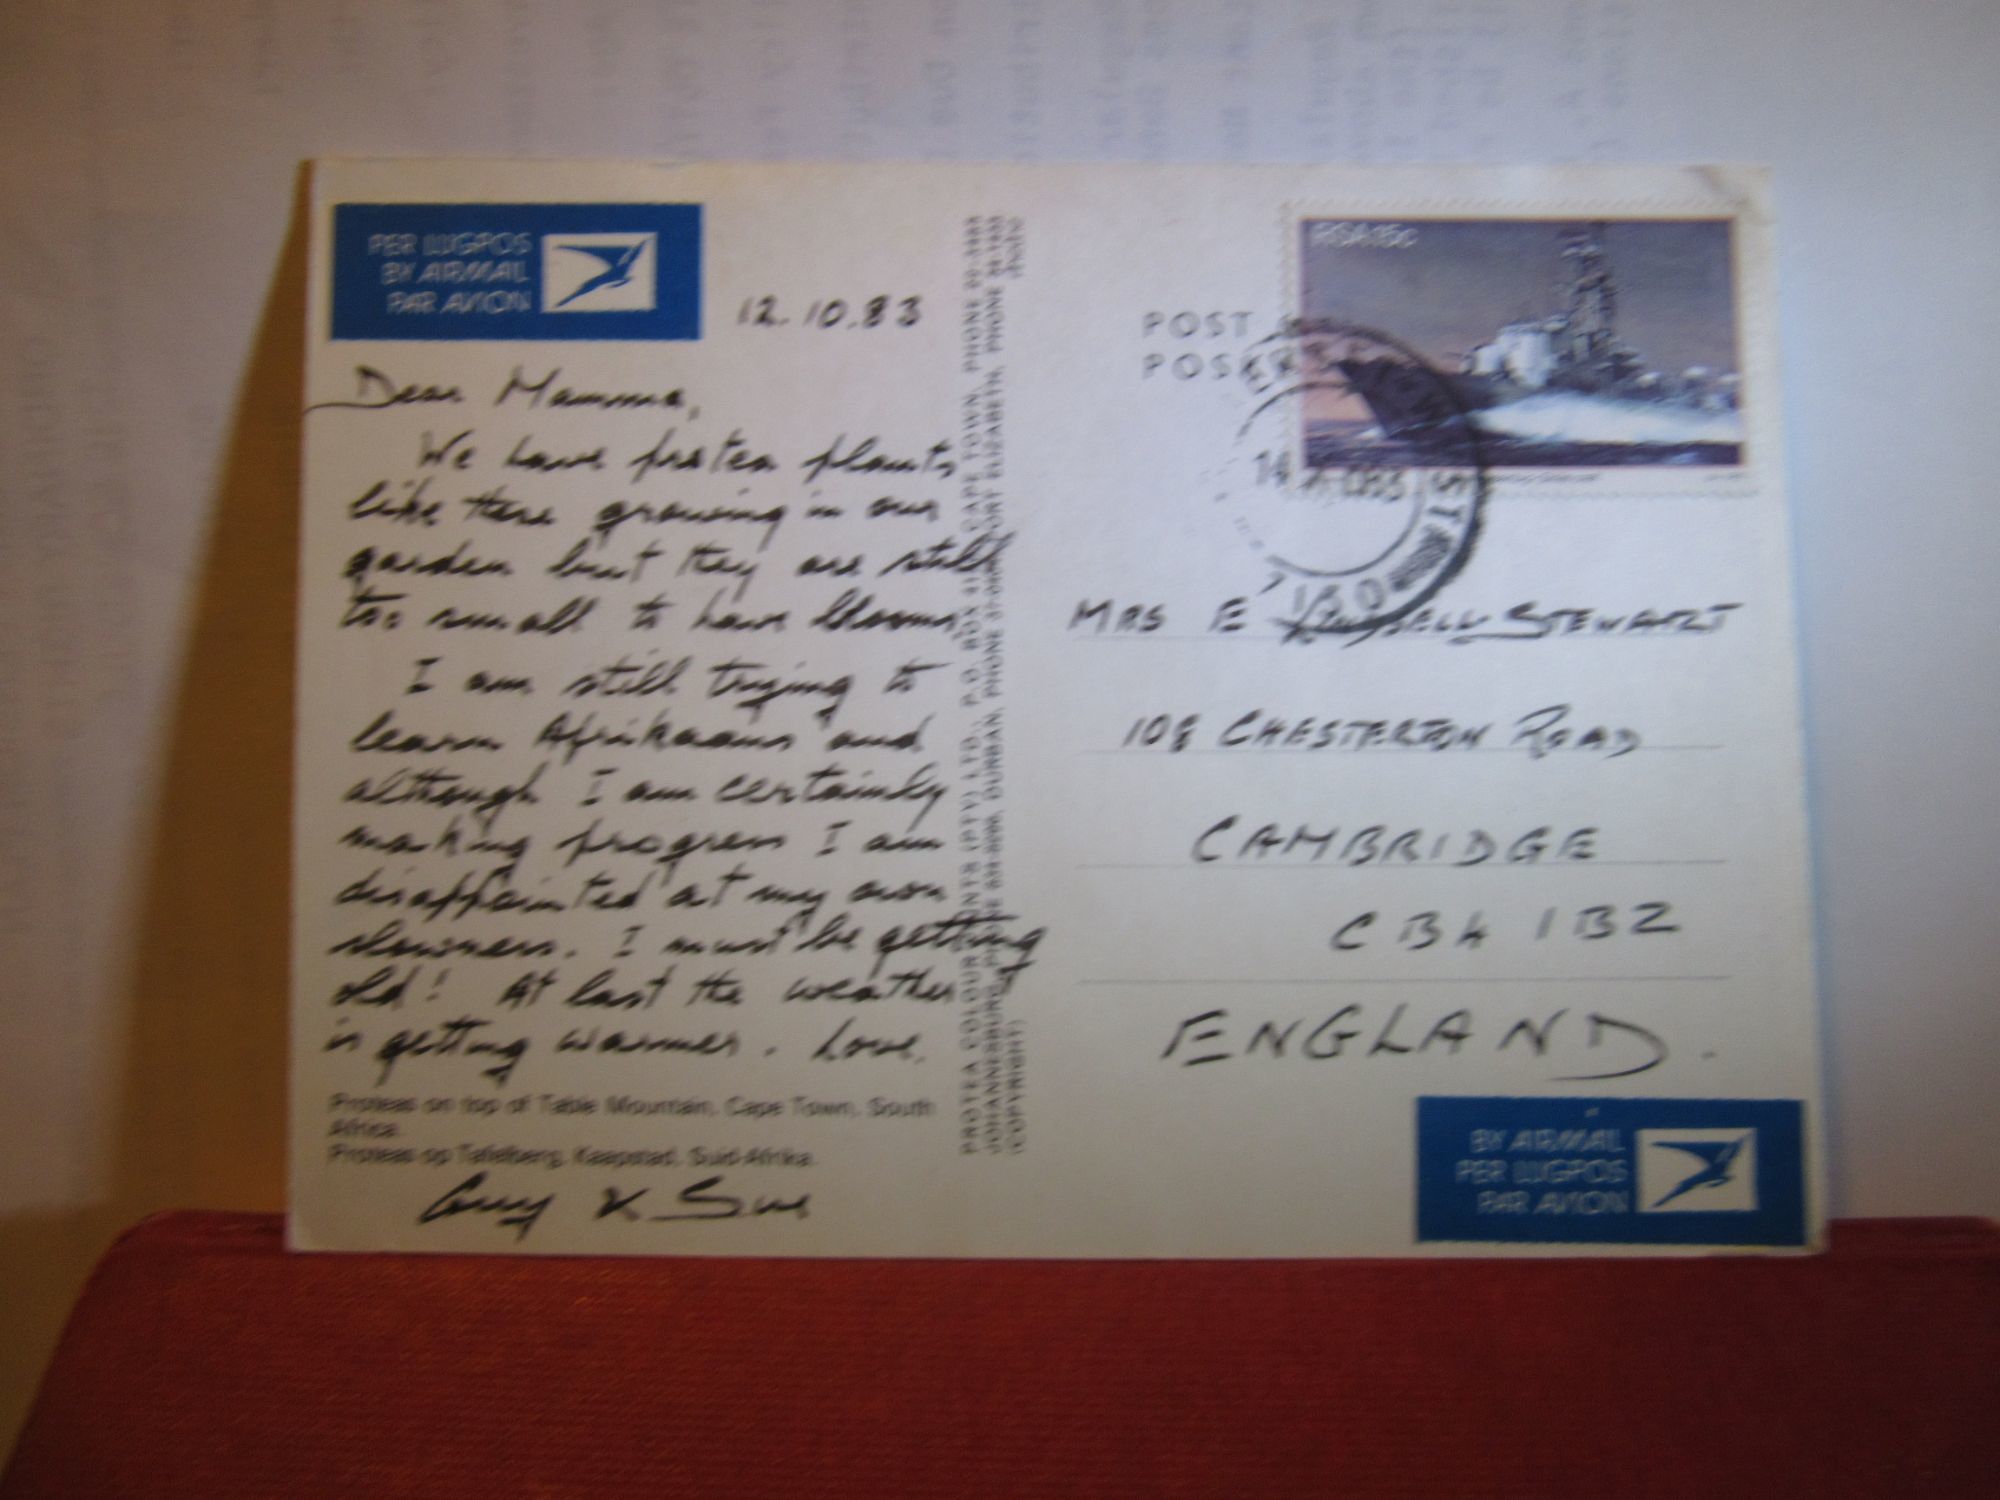 PER LUGPOS
BY AIRMAIL
PAR AVION
12.10.83
Dear Mamma,
We have protea plants
like these growing in our
garden but they are still
too small to have blooms.
I am still trying to
learn Afrikaans and
although I am certainly
making progress I am
disappointed at my own
slowness. I must be getting
old! At last the weather
is getting warmer. Love,
Proteas on top of Table Mountain, Cape Town, South
Africa.
Proteas op Tafelberg, Kaapstad, Suid-Afrika.
Guy & Sue
PROTEA COLOUR PRINTS (PTY.) LTD., P.O. BOX CAPE TOWN, PHONE
JOHANNESBURG, PHONE DURBAN, PHONE PORT ELIZABETH, PHONE
(COPYRIGHT)
POST
RSA 15c
MRS E RUSSELL STEWART
108 CHESTERTON ROAD
CAMBRIDGE
CB4 1BZ
ENGLAND.
BY AIRMAIL
PER LUGPOS
PAR AVION